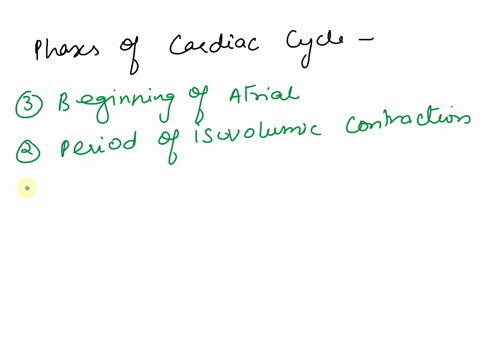 Phases of Cardiac Cycle -
③ Beginning of Atrial
② Period of isovolumic contraction